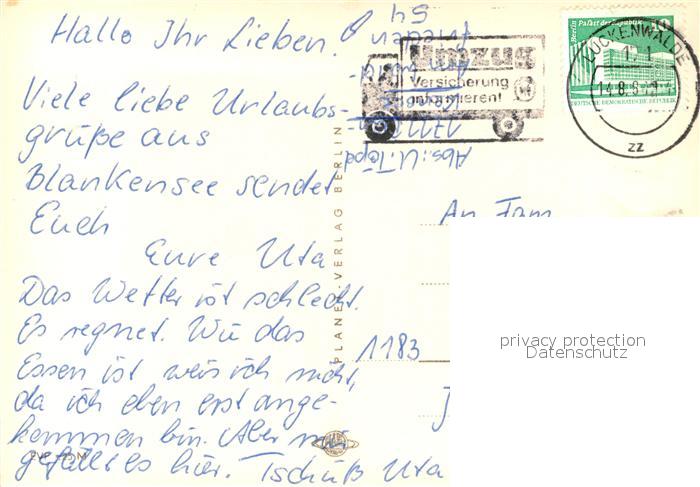 Hallo Ihr Lieben!
Viele liebe Urlaubs-
grüße aus
Blankensee sendet
Euch
Eure Uta
Das Wetter ist schlecht.
Es regnet. Wie das
Essen ist weis ich nicht,
da ich eben erst ange-
kommen bin. Aber mir
gefällt es hier. Tschüß Uta
EVP
M
PLANET-VERLAG BERLIN
Abs.: U.
54
Umzug
Versicherung
informieren!
Berlin Palast der Republik
10
DEUTSCHE DEMOKRATISCHE REPUBLIK
LUCKENWALDE
1
14.8.
ZZ
An Fam.
1183
privacy protection
Datenschutz